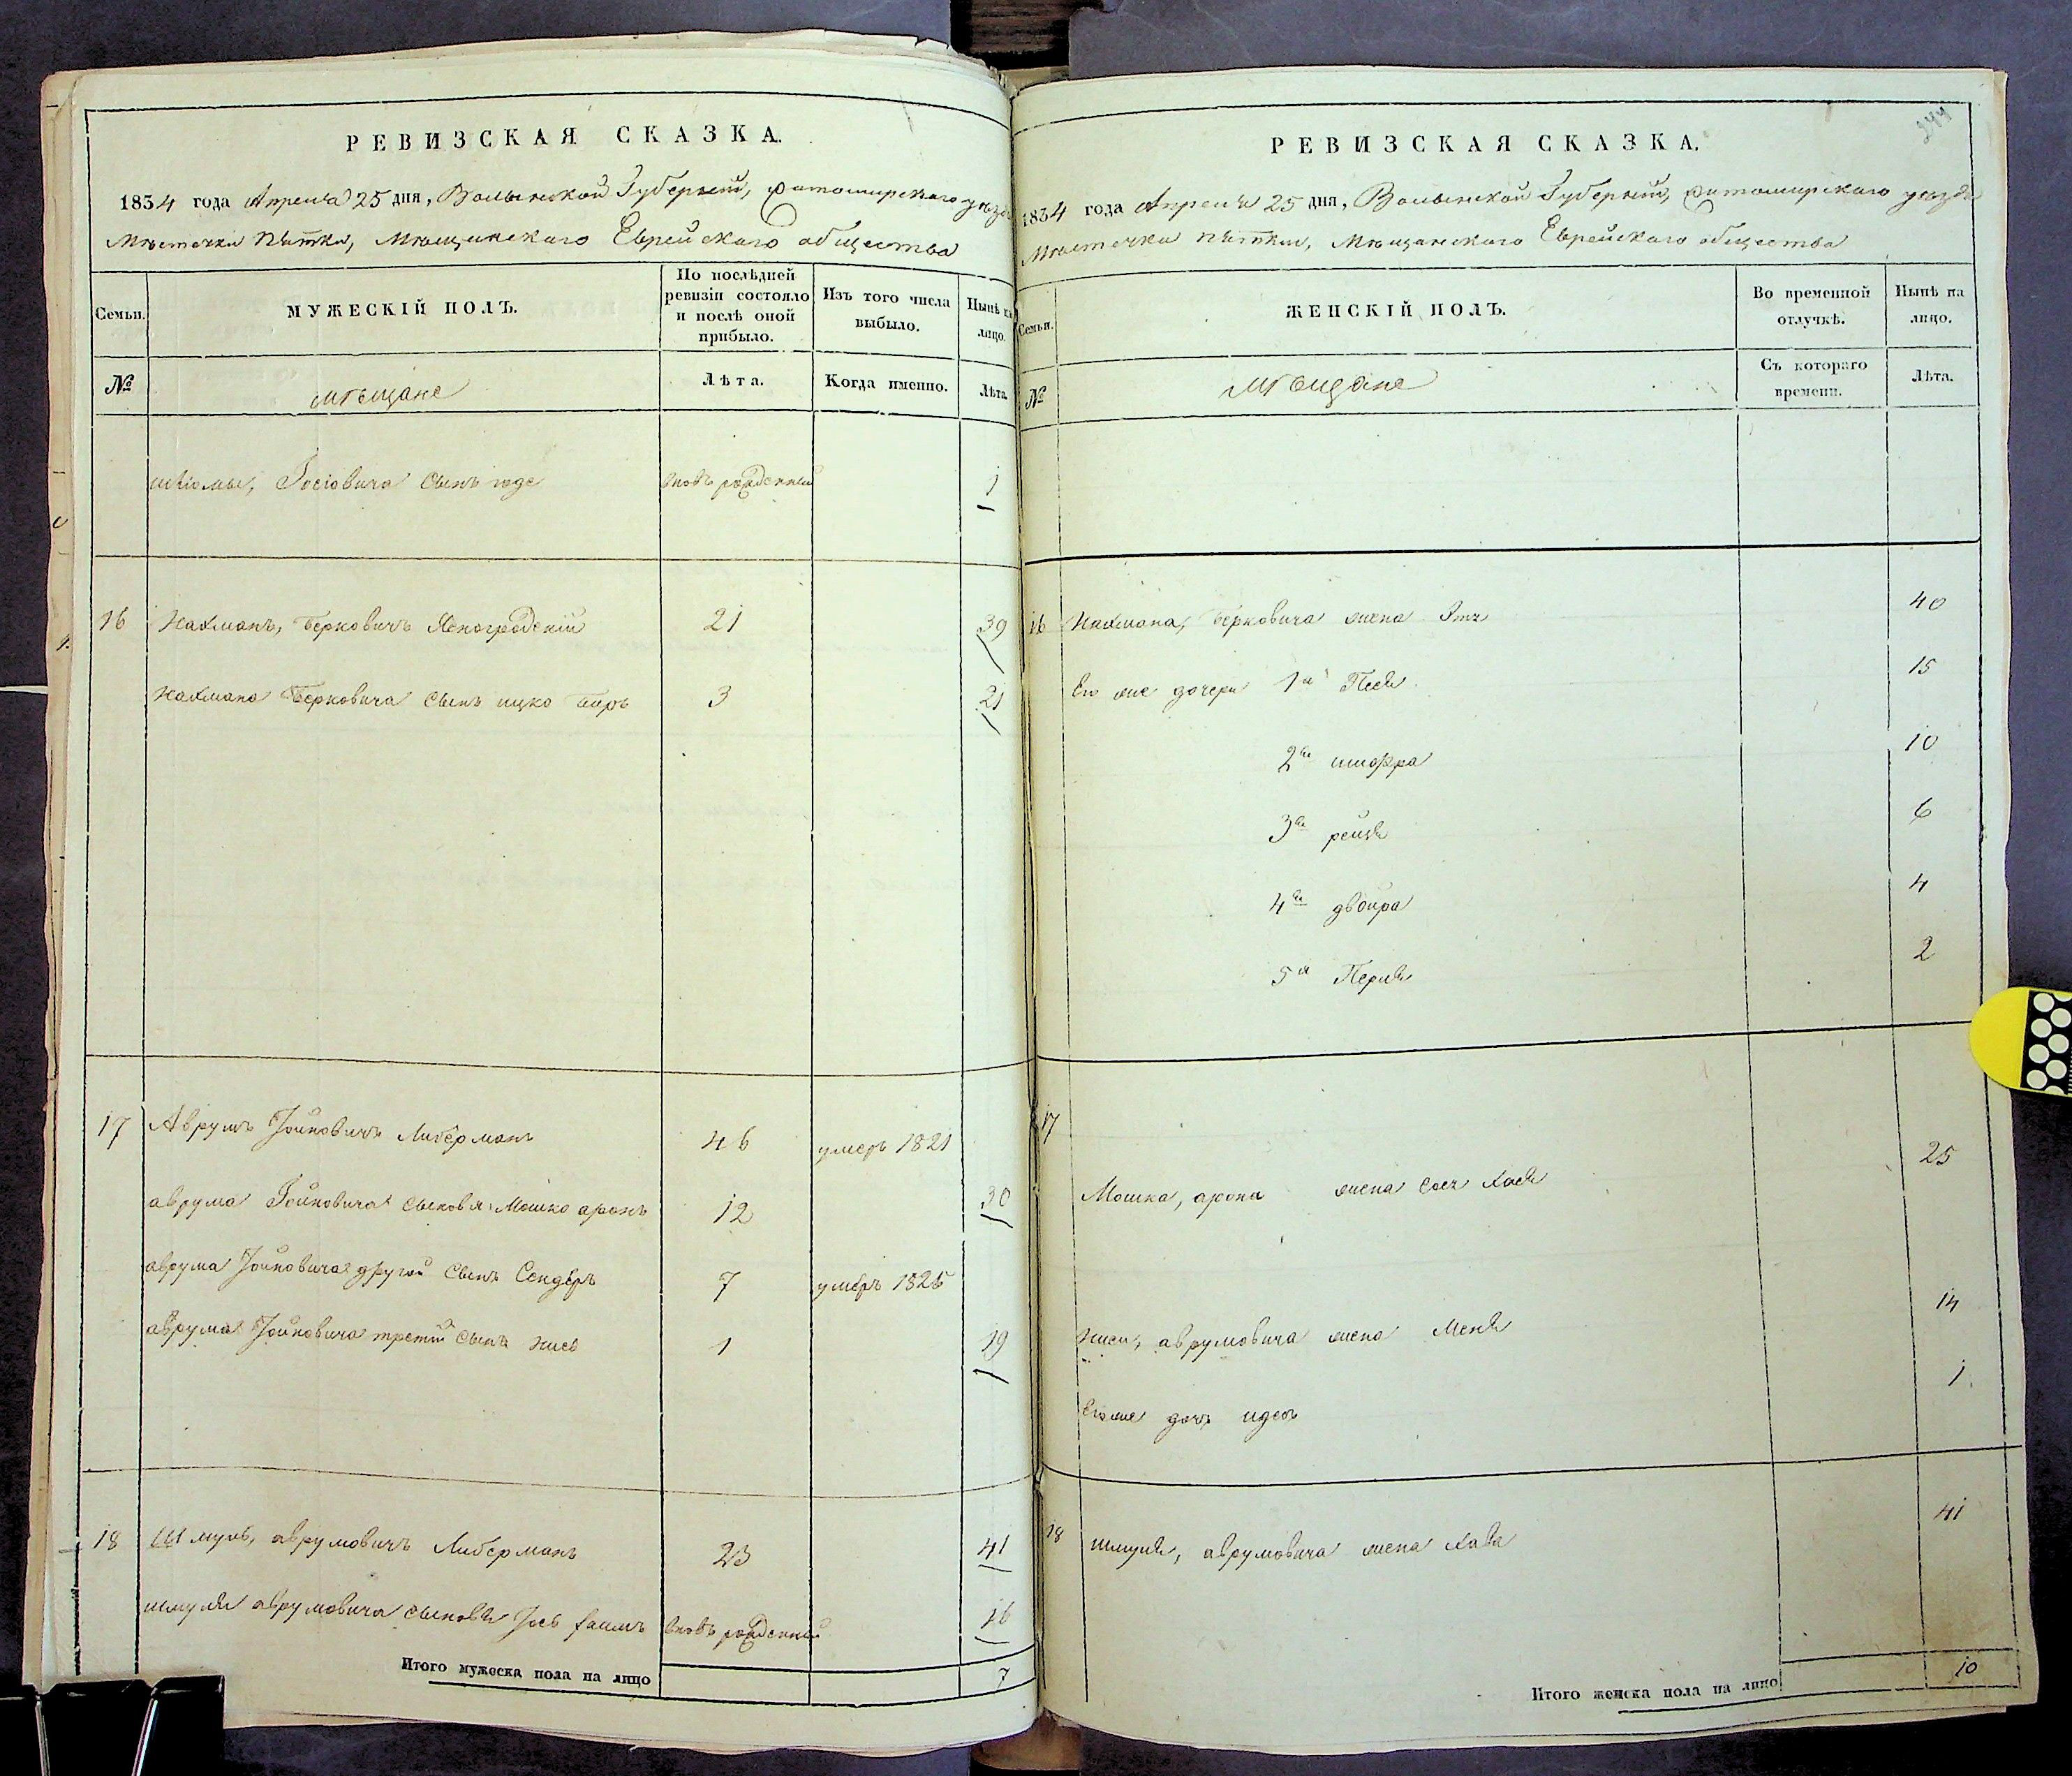 РЕВИЗСКАЯ СКАЗКА.
1834 года Апреля 25 дня, Волынской Губерніи, Житомирского уезда
Мѣстечка Пятки, Мѣщанского Еврейского общества
Семьи.
МУЖЕСКІЙ ПОЛЪ.
По послѣдней ревизіи состояло и послѣ оной прибыло.
Изъ того числа выбыло.
Нынѣ на лицо.
№
мѣщане
Лѣта.
Когда именно.
Лѣта.
Іосіовича сынъ юде вновь рожденный 1
16 Нахманъ, Берковичъ Ясногродскій 21 39
Нахмана Берковича сынъ ицко Беръ 3 21
17 Аврумъ Іойновичъ Либерманъ 46 умеръ 1821
аврума Іойновича сыновя Мошко аронъ 12 30
аврума Іойновича другой сынъ Сендеръ 7 умеръ 1825
аврума Іойновича третій сынъ 1 19
18 Шмуль, аврумовичъ Либерманъ 23 41
шмуля аврумовича сыновя Іось хаимъ вновь рожденный 16
Итого мужеска пола на лицо 7
244
РЕВИЗСКАЯ СКАЗКА.
1834 года Апреля 25 дня, Волынской Губерніи, Житомирского уезда
Мѣстечка Пятки, Мѣщанского Еврейского общества
Семьи.
ЖЕНСКІЙ ПОЛЪ.
Во временной отлучкѣ.
Нынѣ на лицо.
№
мѣщане
Съ котораго времени.
Лѣта.
16 Нахмана, Берковича жена 40
Его же дочери 1я Песя 15
2я шифра 10
3я рейзя 6
4я двойра 4
5я Перля 2
17
Мошка, арона жена Хася 25
аврумовича жена Меня 14
Его же дочь 1
18 шмуля, аврумовича жена Хава 41
Итого женска пола на лицо 10